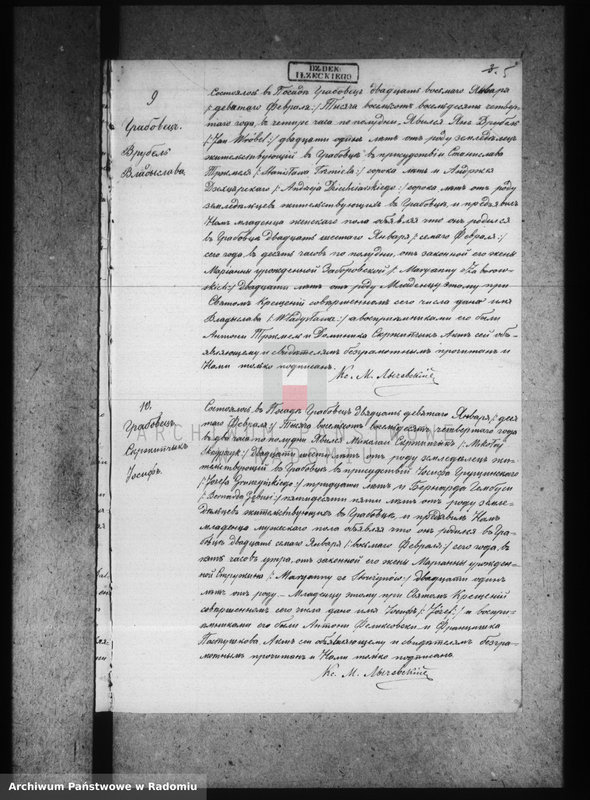 DZBEK:
IŁŻECKIEGO
9
Грабовецъ.
Врубель
Владыслава.
Состоялось въ Посадѣ Грабовецъ двадцать восьмаго Января
/:девятаго Февраля:/ тысяча восемьсотъ восемьдесятъ четвер-
таго года, въ четыре часа по полудни. Явился Янъ Врубель
/:Jan Wróbel:/ двадцати одинъ лѣтъ отъ роду земледѣлецъ
жительствующій въ Грабовцѣ въ присутствіи Станислава
/:Stanisława
сорока лѣтъ и Андржея
/:Andrzeja
сорока лѣтъ отъ роду
земледѣльцевъ жительствующихъ въ Грабовцѣ и предъявилъ
Намъ младенца женскаго пола объявляя что онъ родился
въ Грабовцѣ двадцать шестаго Января /:седмаго Февраля:/
сего года въ десять часовъ по полудни, отъ законной его жены
Маріанны урожденной Заборовской /:Maryanny Zaborow-
skich:/ двадцати лѣтъ отъ роду. Младенцу этому при
Святомъ Крещеніи совершенномъ сего числа дано имя
Владыслава /:Władysława:/ а воспріемниками его были
Антони
и Доминика Скржипчикъ. Актъ сей объ-
являющему и свидѣтелямъ безграмотнымъ прочитанъ и
Нами только подписанъ.
Кс. М.
10.
Грабовецъ
Скржипчикъ
Іосифъ.
Состоялось въ Посадѣ Грабовецъ двадцать девятаго Января /:деся-
таго Февраля:/ тысяча восемьсотъ восемьдесятъ четвертаго года
въ два часа по полудни. Явился Миколай Скржипчикъ /:Mikołaj
Skrzypczyk:/ двадцати шести лѣтъ отъ роду земледѣлецъ жи-
тельствующій въ Грабовцѣ въ присутствіи Іосифа
/:Józefa
тридцати лѣтъ и Бернарда
/:Bernarda
пятидесяти пяти лѣтъ отъ роду земле-
дѣльцевъ жительствующихъ въ Грабовцѣ, и предъявилъ Намъ
младенца мужескаго пола объявляя что онъ родился въ Гра-
бовцѣ двадцать седмаго Января /:восьмаго Февраля:/ сего года въ
пять часовъ утра, отъ законной его жены Маріанны урожден-
ной
/:Maryanny
двадцати одинъ
лѣтъ отъ роду. Младенцу этому при Святомъ Крещеніи
совершенномъ сего числа дано имя Іосифъ /:Józef:/ а воспрі-
емниками его были Антони
и Францишка
Пастушкова. Актъ сей объявляющему и свидѣтелямъ безгра-
мотнымъ прочитанъ и Нами только подписанъ.
Кс. М.
Archiwum Państwowe w Radomiu